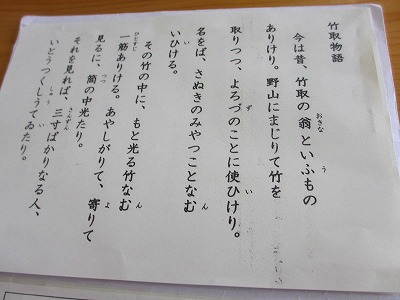 竹取物語
おきな う
今は昔、竹取の翁といふもの
ありけり。野山にまじりて竹を
ず い
取りつつ、よろづのことに使ひけり。
ん
名をば、さぬきのみやつことなむ
い
いひける。
ん
その竹の中に、もと光る竹なむ
ひとすじ よ
一筋ありける。あやしがりて、寄りて
つつ
見るに、筒の中光たり。
さんずん
それを見れば、三寸ばかりなる人、
い
いとうつくしうてゐたり。